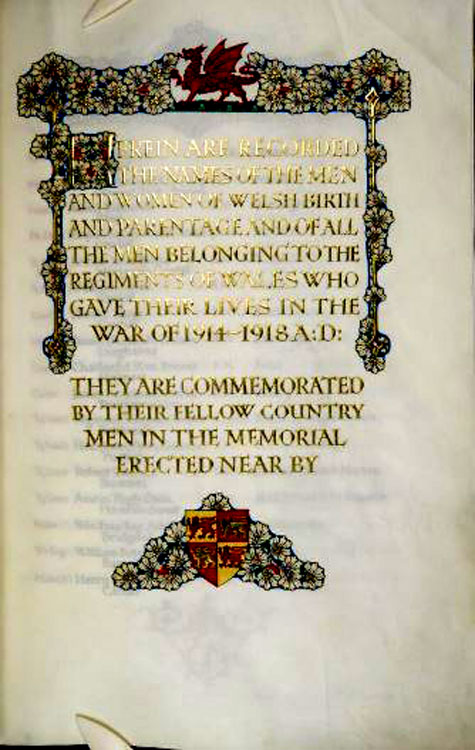 HEREIN ARE RECORDED
THE NAMES OF THE MEN
AND WOMEN OF WELSH BIRTH
AND PARENTAGE AND OF ALL
THE MEN BELONGING TO THE
REGIMENTS OF WALES WHO
GAVE THEIR LIVES IN THE
WAR OF 1914–1918 A:D:
THEY ARE COMMEMORATED
BY THEIR FELLOW COUNTRY
MEN IN THE MEMORIAL
ERECTED NEAR BY